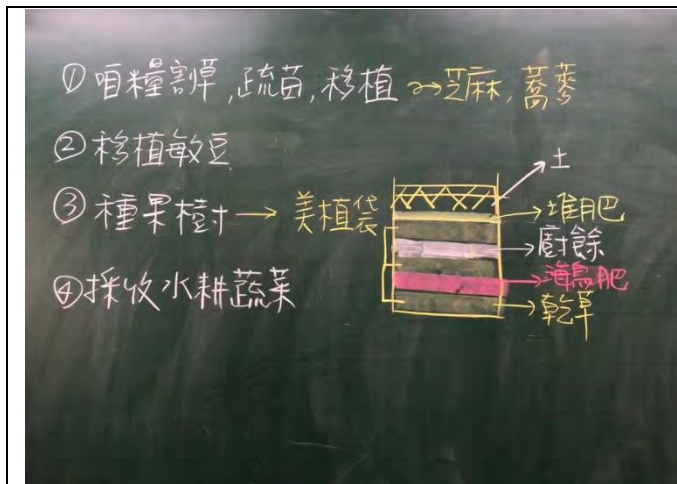 ① 咱糧割草,疏苗,移植 → 芝麻,蕎麥
② 移植敏豆
③ 種果樹 → 美植袋
④ 採收水耕蔬菜
土
堆肥
廚餘
海鳥肥
乾草